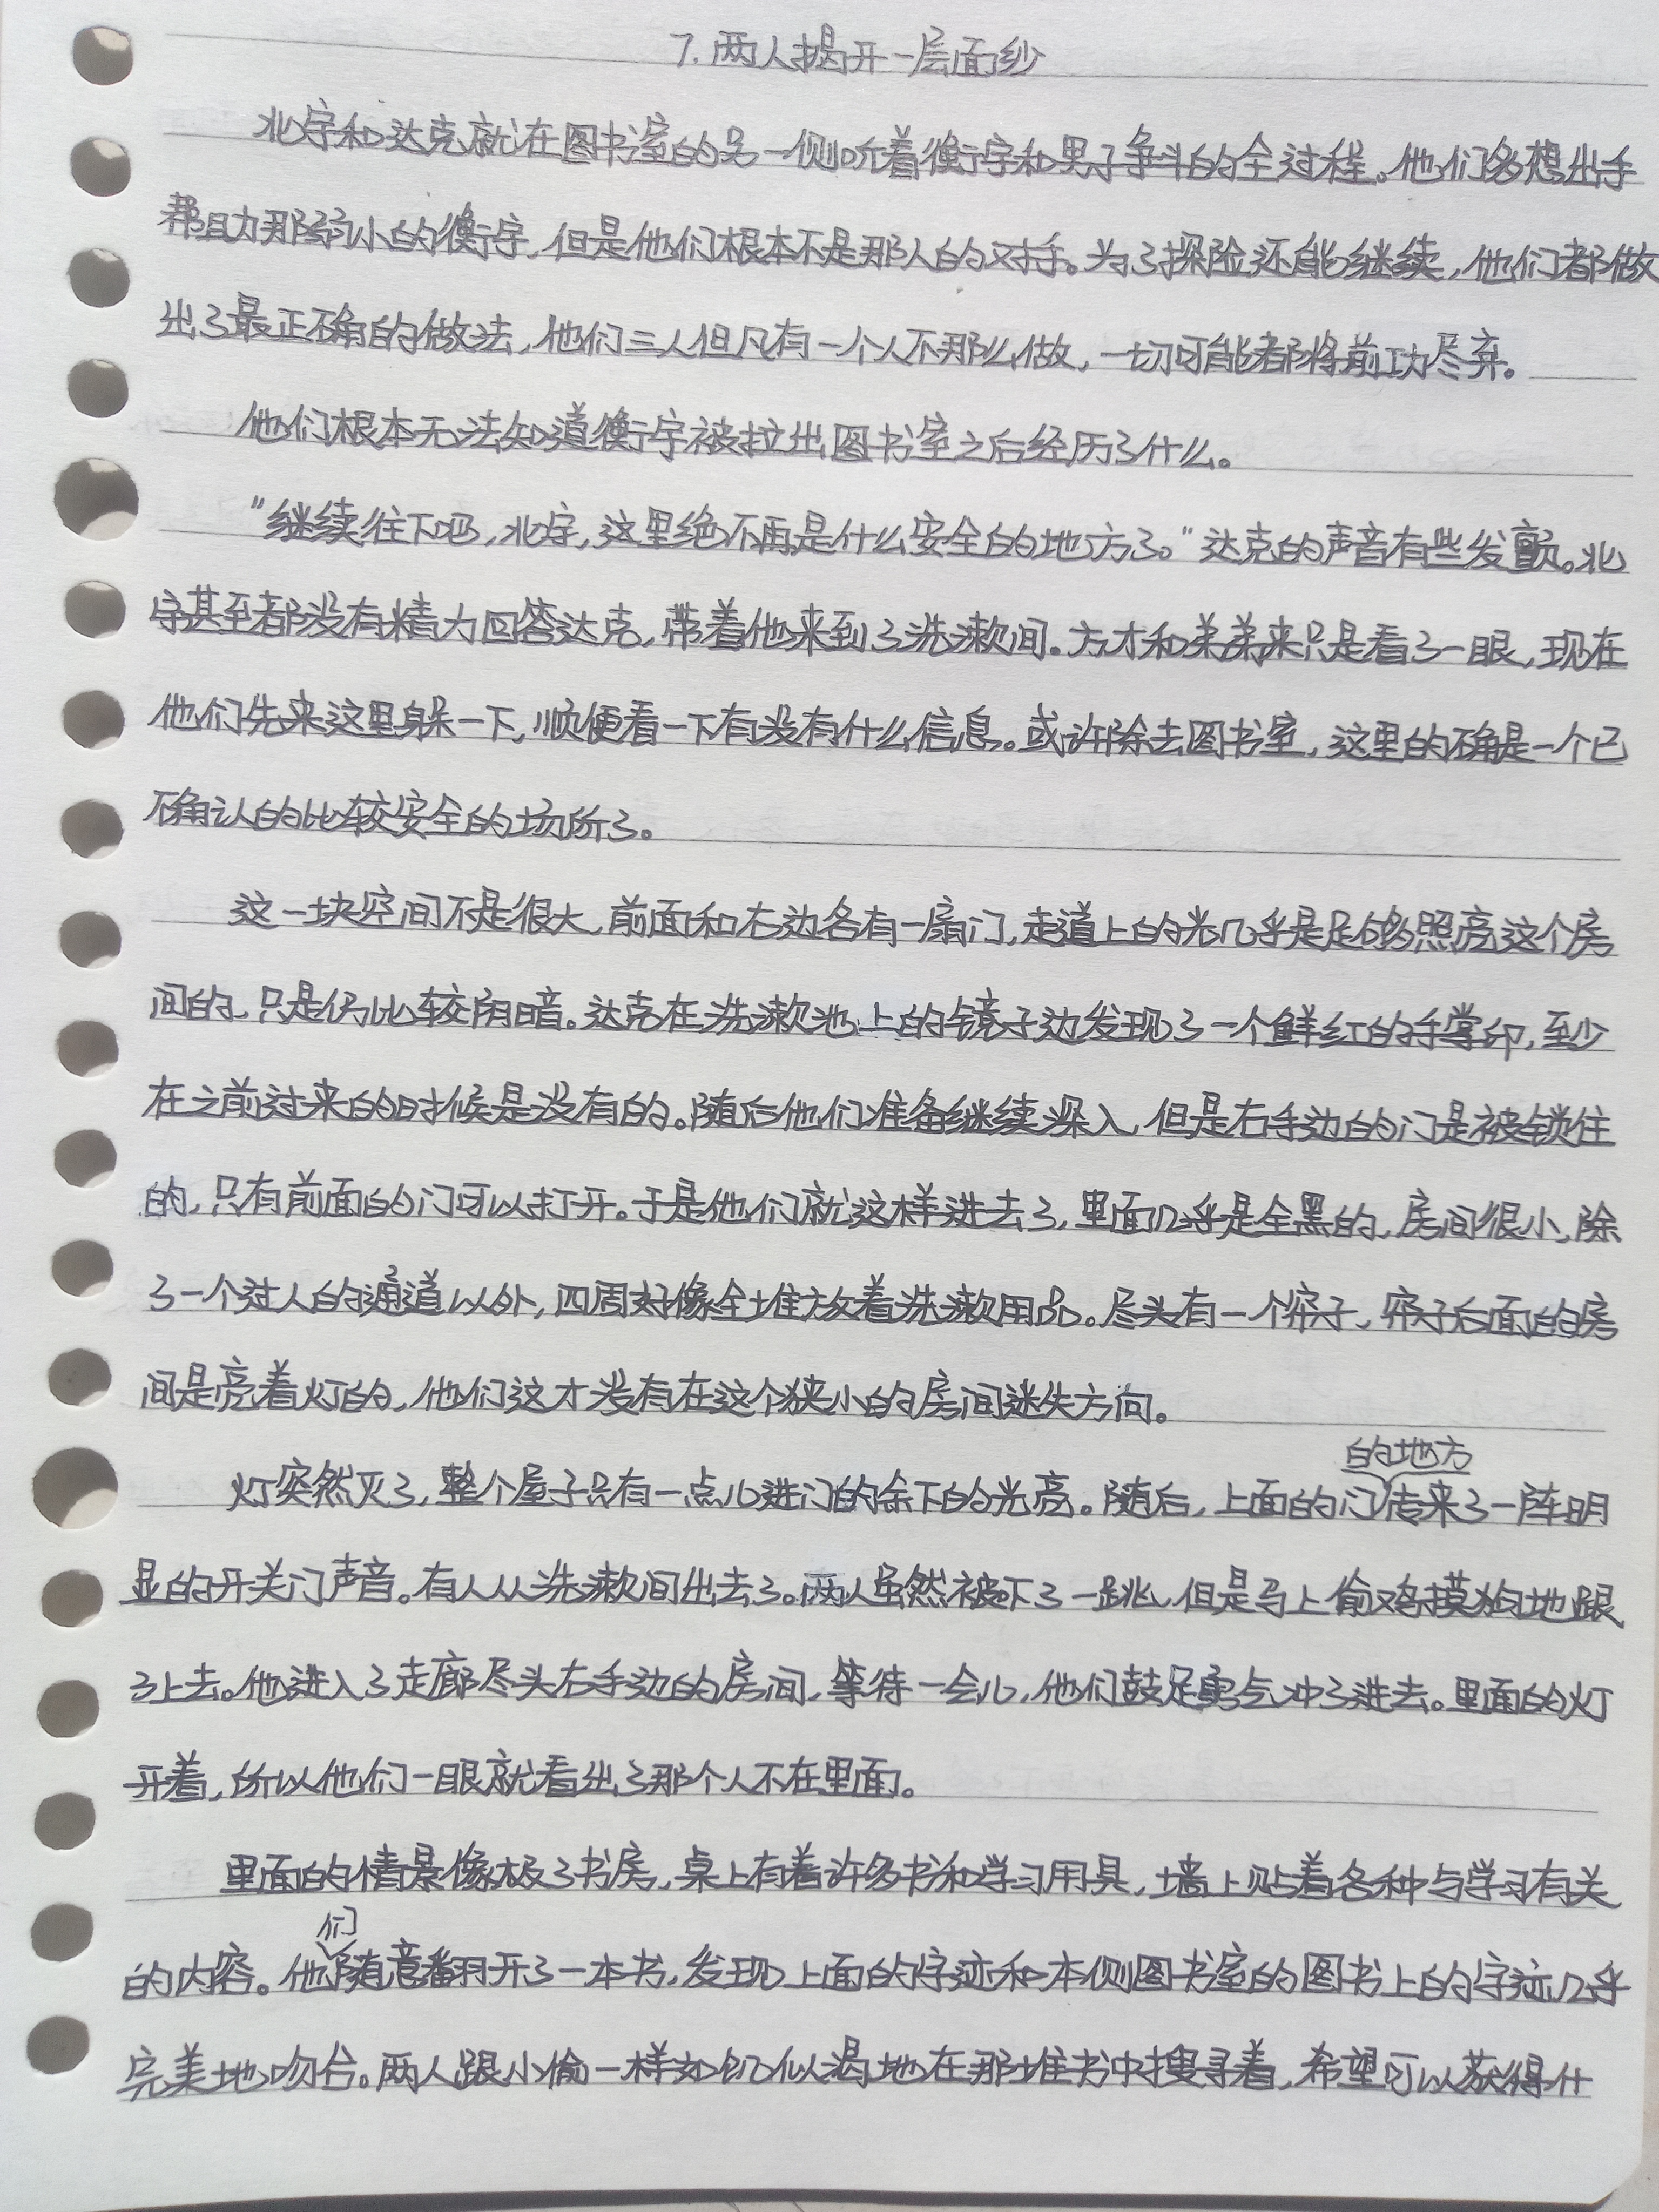 7. 两人揭开一层面纱
北宇和达克就在图书室的另一侧听着衡宇和男子争斗的全过程。他们多想出手
帮助那弱小的衡宇，但是他们根本不是那人的对手。为了探险还能继续，他们都做
出了最正确的做法，他们三人但凡有一个人不那么做，一切可能都将前功尽弃。
他们根本无法知道衡宇被拉出图书室之后经历了什么。
“继续往下吧，北宇，这里绝不再是什么安全的地方了。”达克的声音有些发颤。北
宇甚至都没有精力回答达克，带着他来到了洗漱间。方才和弟弟来只是看了一眼，现在
他们先来这里躲一下，顺便看一下有没有什么信息。或许除去图书室，这里的确是一个已
确认的比较安全的场所了。
这一块空间不是很大，前面和右边各有一扇门，走道上的光几乎是足够照亮这个房
间的，只是仍比较阴暗。达克在洗漱池上的镜子边发现了一个鲜红的手掌印，至少
在之前过来的时候是没有的。随后他们准备继续深入，但是右手边的门是被锁住
的，只有前面的门可以打开。于是他们就这样进去了，里面几乎是全黑的，房间很小，除
了一个过人的通道以外，四周好像全堆放着洗漱用品。尽头有一个帘子，帘子后面的房
间是亮着灯的，他们这才没有在这个狭小的房间迷失方向。
灯突然灭了，整个屋子只有一点儿进门的余下的光亮。随后，上面的门的地方传来了一阵明
显的开关门声音。有人从洗漱间出去了。两人虽然被吓了一跳，但是马上偷鸡摸狗地跟
了上去。他进入了走廊尽头右手边的房间，等待一会儿，他们鼓足勇气冲了进去。里面的灯
开着，所以他们一眼就看出了那个人不在里面。
里面的情景像极了书房，桌上有着许多书和学习用具，墙上贴着各种与学习有关
的内容。他们随意翻开了一本书，发现上面的字迹和本侧图书室的图书上的字迹几乎
完美地吻合。两人跟小偷一样如饥似渴地在那堆书中搜寻着，希望可以获得什